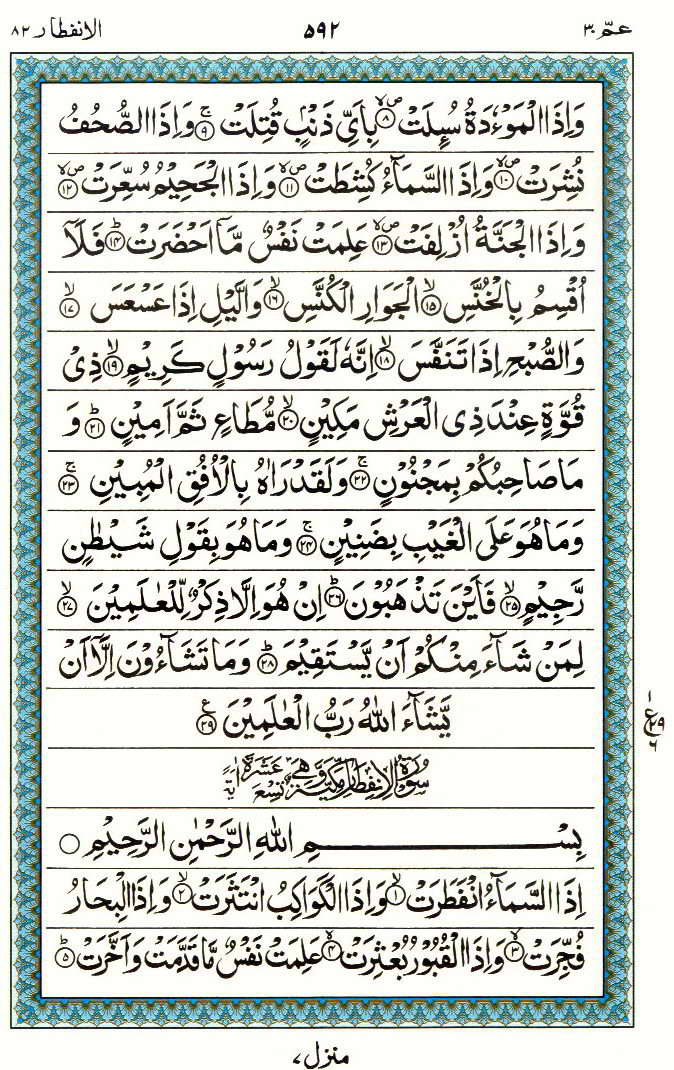 عـمّ ٣٠
٥٩٢
الانفطار ٨٢
وَاِذَا الْمَوْءٗدَةُ سُىِٕلَتْ ۪ۙ‏﴿۸﴾ بِاَىِّ ذَنْۢبٍ قُتِلَتْ‌ۚ‏﴿۹﴾ وَاِذَا الصُّحُفُ
نُشِرَتْ ۪ۙ‏﴿۱۰﴾ وَاِذَا السَّمَآءُ كُشِطَتْ ۪ۙ‏﴿۱۱﴾ وَاِذَا الْجَحِيْمُ سُعِّرَتْ ۪ۙ‏﴿۱۲﴾
وَاِذَا الْجَنَّةُ اُزْلِفَتْ ۪ۙ‏﴿۱۳﴾ عَلِمَتْ نَفْسٌ مَّاۤ اَحْضَرَتْؕ‏﴿۱۴﴾ فَلَاۤ
اُقْسِمُ بِالْخُنَّسِۙ‏﴿۱۵﴾ الْجَوَارِ الْكُنَّسِۙ‏﴿۱۶﴾ وَالَّيْلِ اِذَا عَسْعَسَۙ‏﴿۱۷﴾
وَالصُّبْحِ اِذَا تَنَفَّسَۙ‏﴿۱۸﴾ اِنَّهٗ لَقَوْلُ رَسُوْلٍ كَرِيْمٍۙ‏﴿۱۹﴾ ذِىْ
قُوَّةٍ عِنْدَ ذِى الْعَرْشِ مَكِيْنٍۙ‏﴿۲۰﴾ مُّطَاعٍ ثَمَّ اَمِيْنٍؕ‏﴿۲۱﴾ وَ
مَا صَاحِبُكُمْ بِمَجْنُوْنٍ‌ۚ‏﴿۲۲﴾ وَلَقَدْ رَاٰهُ بِالْاُفُقِ الْمُبِيْنِ‌ۚ‏﴿۲۳﴾
وَمَا هُوَ عَلَى الْغَيْبِ بِضَنِيْنٍ‌ۚ‏﴿۲۴﴾ وَمَا هُوَ بِقَوْلِ شَيْطٰنٍ
رَّجِيْمٍۙ‏﴿۲۵﴾ فَاَيْنَ تَذْهَبُوْنَؕ‏﴿۲۶﴾ اِنْ هُوَ اِلَّا ذِكْرٌ لِّلْعٰلَمِيْنَۙ‏﴿۲۷﴾
لِمَنْ شَآءَ مِنْكُمْ اَنْ يَّسْتَقِيْمَؕ‏﴿۲۸﴾ وَمَا تَشَآءُوْنَ اِلَّاۤ اَنْ
يَّشَآءَ اللّٰهُ رَبُّ الْعٰلَمِيْنَ‏﴿۲۹﴾ ع
١ ع ٢٩ ٦
سُوْرَةُ الْاِنْفِطَارِ مَكِّيَّةٌ وَّهِيَ تِسْعَ عَشْرَةَ اٰيَةً
بِسْمِ اللّٰهِ الرَّحْمٰنِ الرَّحِيْمِ
اِذَا السَّمَآءُ انْفَطَرَتْۙ‏﴿۱﴾ وَاِذَا الْكَوَاكِبُ انْتَثَرَتْۙ‏﴿۲﴾ وَاِذَا الْبِحَارُ
فُجِّرَتْۙ‏﴿۳﴾ وَاِذَا الْقُبُوْرُ بُعْثِرَتْۙ‏﴿۴﴾ عَلِمَتْ نَفْسٌ مَّا قَدَّمَتْ وَاَخَّرَتْؕ‏﴿۵﴾
منزل ٧